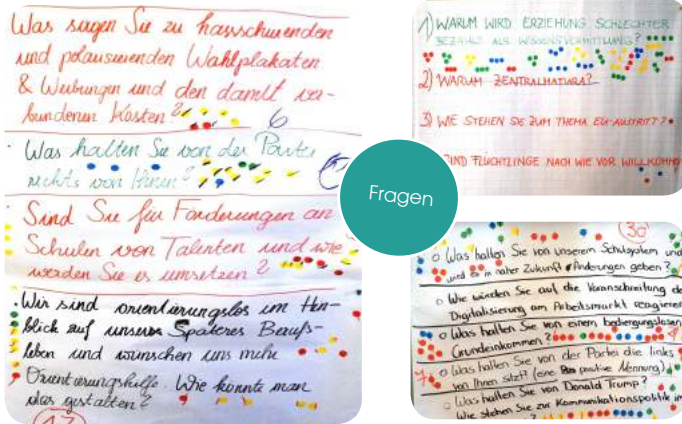 Was sagen Sie zu hassschürenden
und polarisierenden Wahlplakaten
& Werbungen und den damit ver-
bundenen Kosten?
6
· Was halten Sie von der Partei
rechts von Ihnen?
· Sind Sie für Förderungen an
Schulen von Talenten und wie
werden Sie es umsetzen?
· Wir sind orientierungslos im Hin-
blick auf unseres Späteres Berufs-
leben und wünschen uns mehr
Orientierungshilfe. Wie könnte man
das gestalten?
17
Fragen
1) WARUM WIRD ERZIEHUNG SCHLECHTER
BEZAHLT ALS WISSENSVERMITTLUNG?
2) WARUM ZENTRALMATURA?
3) WIE STEHEN SIE ZUM THEMA EU-AUSTRITT?
SIND FLÜCHTLINGE NACH WIE VOR WILLKOMM
30
o Was halten Sie von unserem Schulsystem und
wird es in naher Zukunft Änderungen geben?
o Wie würden Sie auf die Voranschreitung de
Digitalisierung am Arbeitsmarkt reagieren
o Was halten Sie von einem bedingungslosen
Grundeinkommen?
o Was halten Sie von der Partei die links
von Ihnen sitzt? (eine positive Meinung)
o Was halten Sie von Donald Trump?
Wie stehen Sie zur Kommunikationspolitik in